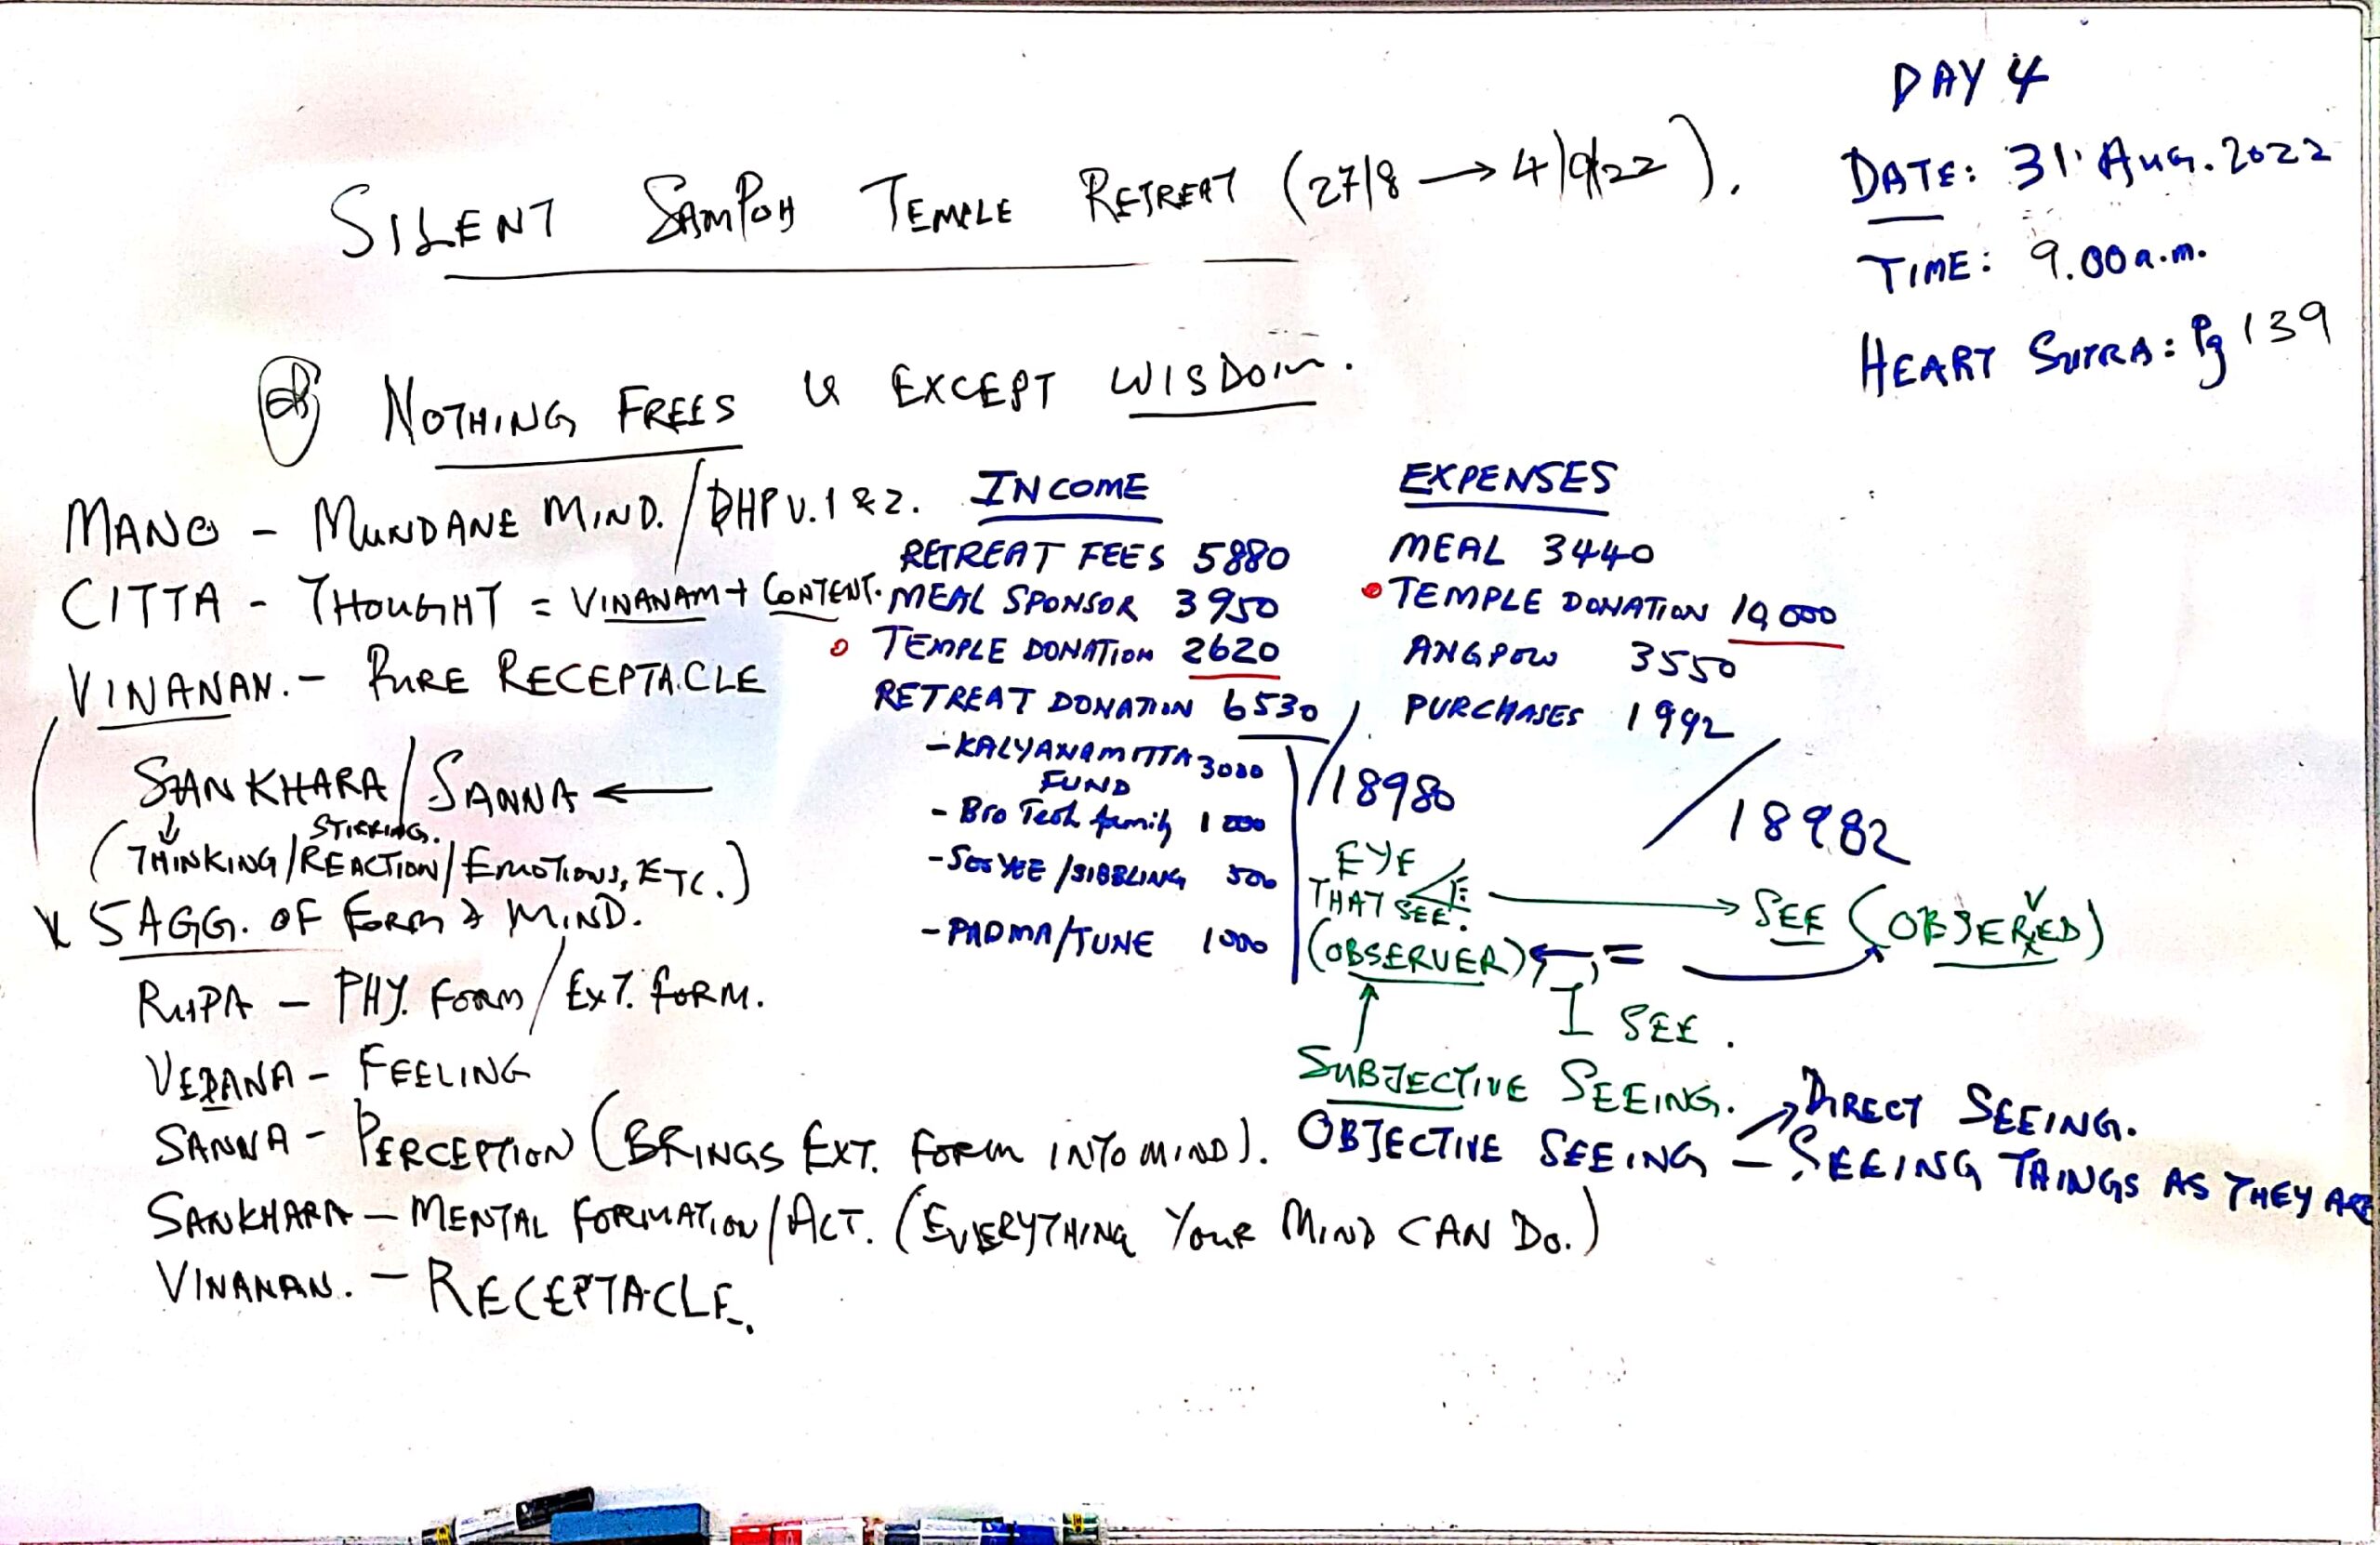 DAY 4
SILENT SAMPOH TEMPLE RETREAT (27/8 → 4/9/22).
DATE: 31. AUG. 2022
TIME: 9.00 a.m.
HEART SUTRA: Pg 139
NOTHING FREES U EXCEPT WISDOM.
MANO - MUNDANE MIND. / DHP V. 1 & 2.
CITTA - THOUGHT = VINANAM + CONTENT.
VINANAN. - PURE RECEPTACLE
SANKHARA / SANNA ←
STIRRING.
(THINKING / REACTION / EMOTIONS, ETC.)
5 AGG. OF FORM & MIND.
RUPA - PHY. FORM / EXT. FORM.
VEDANA - FEELING
SANNA - PERCEPTION (BRINGS EXT. FORM INTO MIND).
SANKHARA - MENTAL FORMATION / ACT. (EVERYTHING YOUR MIND CAN DO.)
VINANAN. - RECEPTACLE.
INCOME
RETREAT FEES 5880
MEAL SPONSOR 3950
TEMPLE DONATION 2620
RETREAT DONATION 6530
- KALYANAMITTA FUND 3000
- Bro Teoh family 1000
- /SIBBLING 500
- PADMA/TUNE 1000
/18980
EXPENSES
MEAL 3440
TEMPLE DONATION 10,000
ANGPOW 3550
PURCHASES 1992
/18982
EYE THAT SEE. → SEE (OBSERVED)
(OBSERVER) ← =
I SEE.
SUBJECTIVE SEEING.
DIRECT SEEING.
OBJECTIVE SEEING - SEEING THINGS AS THEY ARE